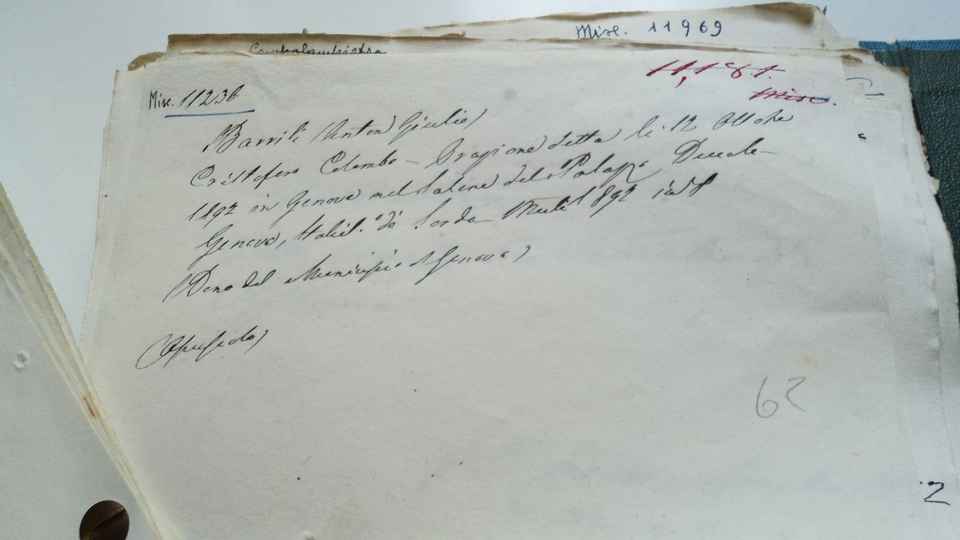 Misc. 11969
Misc. 11236
Misc.
Barrili (Anton Giulio)
Cristoforo Colombo – Orazione detta li 12 Ottobre
1892 in Genova nel Salone del Palazzo Ducale
Genova, Stabil.º di Sordo-Muti 1892 in 8
(Dono del Municipio di Genova)
(Opuscolo)
62
2